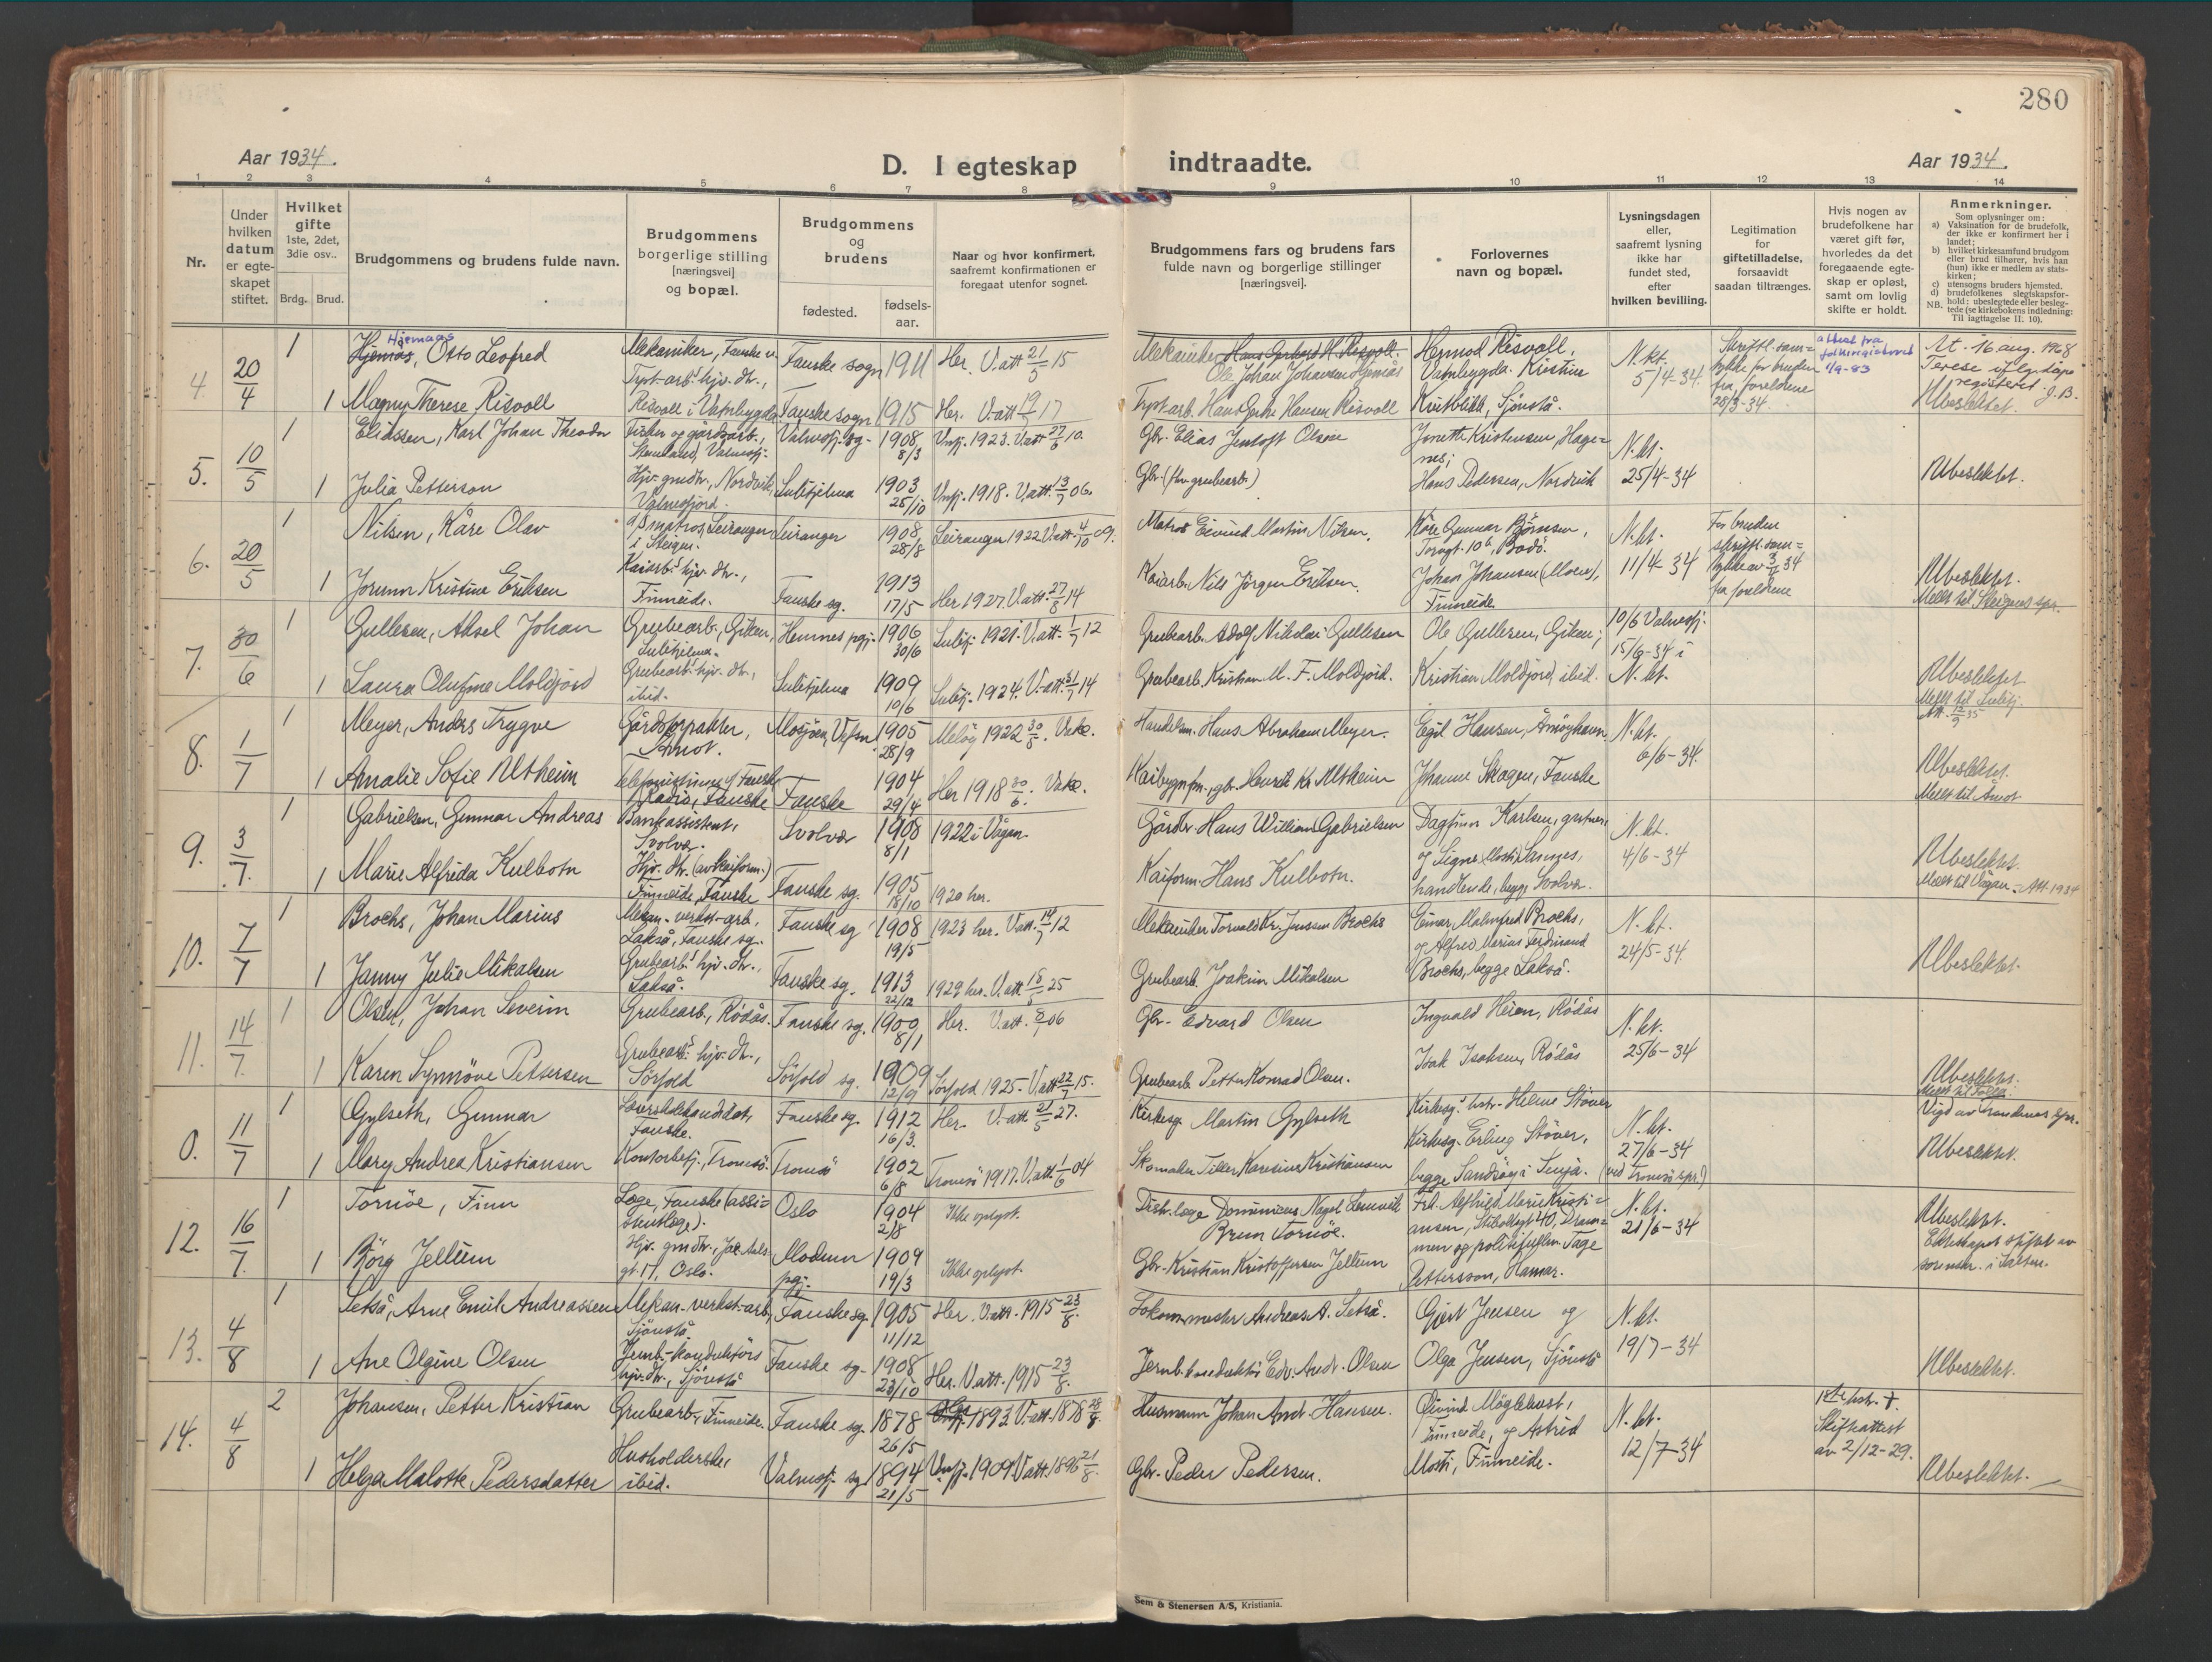 280
Aar 1934.
D. I egteskap indtraadte.
Aar 1934.
1 2 3 4 5 6 7 8 9 10 11 12 13 14
Nr.
Under hvilken datum er egteskapet stiftet.
Hvilket gifte 1ste, 2det, 3die osv..
Brdg. Brud.
Brudgommens og brudens fulde navn.
Brudgommens borgerlige stilling [næringsvei] og bopæl.
Brudgommens og brudens
fødested.
fødsels-aar.
Naar og hvor konfirmert, saafremt konfirmationen er foregaat utenfor sognet.
Brudgommens fars og brudens fars fulde navn og borgerlige stillinger [næringsvei].
Forlovernes navn og bopæl.
Lysningsdagen eller, saafremt lysning ikke har fundet sted, efter hvilken bevilling.
Legitimation for giftetilladelse, forsaavidt saadan tiltrænges.
Hvis nogen av brudefolkene har været gift før, hvorledes da det foregaaende egteskap er opløst, samt om lovlig skifte er holdt.
Anmerkninger.
Som oplysninger om:
a) Vaksination for de brudefolk, der ikke er konfirmert her i landet;
b) hvilket kirkesamfund brudgom eller brud tilhører, hvis han (hun) ikke er medlem av statskirken;
c) utensogns bruders hjemsted.
d) brudefolkenes slegtskapsforhold: ubeslegtede eller beslegtede (se kirkebokens indledning: Til iagttagelse II. 10).
NB.
4 20/4 1 Hjemås, Otto Leofred Mekaniker, Fauske sogn 1911 Her. V.att 21/5 15
Hjemaas
Mekaniker Hans Gerhard H. Risvoll. Ole Johan Johansen Hjemås
Hermod Risvoll, Vatnbygda. Kristine Kvitblikk, Sjönstå.
N.kt. 5/4-34.
28/3-34.
attest fra folkeregisteret 1/9-83
1 Magny Therese Risvoll Risvoll i Vatnbygda Fauske sogn 1915 Her. V.att 17
Hans Gerhr. Hansen Risvoll
At. 16 aug. 1968
Ubeslektet.
5. 10/5 1 Eliassen, Karl Johan Theodor Valnesfj. sg. 1908 8/3 Vnfj. 1923. V.att 27/6 10.
Gbr. Elias Jentoft Olsen
Jonette Kristensen, Hagenes;
N.kt. 25/4-34
1 Julia Petterson Hjv. gmdtr., Nordvik, Valnesfjord. Sulitjelma 1903 25/10 Vnfj. 1918. V.att. 13/7 06.
Gbr. (før grubearb.)
Hans Pedersen, Nordvik
Ubeslektet.
6. 20/5 1 Nilsen, Kåre Olav matros, Leiranger i Steigen. Leiranger 1908 28/8 Leiranger 1922 V.att. 4/10 09.
Matros Eivind Martin Nilsen.
Kåre Gunnar Börnsen, Torvgt. 10b, Bodö.
N.kt. 11/4-34
For bruden skriftl. samtykke av 3/4 34 fra foreldrene
1 Jorunn Kristine Eriksen Kaiarb.s hjv. dtr., Finneide. Fauske sg. 1913 17/5 Her 1927. V.att. 27/8 14
Kaiarb. Nils Jörgen Eriksen.
Johan Johansen (Moen), Finneide.
Ubeslektet.
Meldt til Steigens spr.
7. 30/6 1 Gullesen, Aksel Johan Grubearb., Giken, Sulitjelma. Hemnes pgj. 1906 30/6 Sulitj. 1921. V.att. 1/7 12
Grubearb. Adolf Nikolai Gullesen
Ole Gullesen, Giken;
10/6 Valnesfj. 15/6-34 i N.kt.
1 Laura Olufine Moldjord Grubearb.s hjv. dtr., ibid. Sulitjelma 1909 10/6 Sulitj. 1924. V.att. 31/7 14
Grubearb. Kristian M. F. Moldjord.
Kristian Moldjord, ibid.
Ubeslektet
Meldt til Sulitj.
8. 1/7 1 Meyer, Anders Trygve Gårdsforpakter, Åmot. Mosjöen, Vefsn 1905 28/9 Meløy 1922 30/5. Vakc.
Handelsm. Hans Abraham Meyer.
Egil Hansen, Åmöyhavn
N.kt. 6/6-34.
1 Amalie Sofie Altheim Telefonistinne v/ Fauske Radio, Fauske Fauske 1904 29/4 Her 1918 30/6. Vakc.
Henrik Kr. Altheim
Johanne Skagen, Fauske
Ubeslektet.
Meldt til Åmot
9. 3/7. 1 Gabrielsen, Gunnar Andreas Bankassistent, Svolvær. Svolvær 1908 8/1 1922 i Vågan.
Gårdbr. Hans William Gabrielsen
Dagfinn Karlsen, gartner, og Signe (Mosti) Sannes, handlende, begge Svolvær.
N.kt. 4/6-34
1 Marie Alfrida Kulbotn Hjv. dtr. (av kaiform.) Finneide, Fauske Fauske sg. 1905 18/10 1920 her.
Kaiform. Hans Kulbotn.
Ubeslektet.
Meldt til Vågan. Att. 1934
10. 7/7 1 Brochs, Johan Marius Mekan. verkst. arb., Lakså, Fauske sg. Fauske sg 1908 19/5 1923 her. V.att. 12
Mekaniker Torvald Kr. Jenssen Brochs
Einar Malmfred Brochs, og Alfred Marius Ferdinand Brochs, begge Lakså.
N.kt. 24/5-34.
1 Janny Julie Mikalsen Grubearb.s hjv. dtr., Lakså. Fauske sg. 1913 22/12 1929 her. V.att. 25
Grubearb. Joakim Mikalsen
Ubeslektet.
11. 14/7. 1 Olsen, Johan Severin Grubearb., Rödås. Fauske sg. 1900 8/1 Her. V.att. 06
Gbr. Edvard Olsen
Ingvald Heien, Rödås
N.kt. 25/6-34
1 Karen Synnöve Pettersen Grubearb.s hjv. dtr., Sörfold Sörfold sg. 1909 12/9 Sörfold 1925. V.att 22/7 15.
Grubearb. Petter Konrad Olsen.
Isak Isaksen, Rödås
Ubeslektet.
0. 11/7 1 Gylseth, Gunnar Lærerskolekandidat, Fauske. Fauske sg. 1912 16/3. Her. V.att 21/5 27.
Kirkesg. Martin Gylseth
Kirkesg.s hstr. Helene Stöver Kirkesg. Erling Stöver, begge Sandsöy i Senja.
N.kt. 27/6-34 (ved Tromsö spr.)
Vigd av Trondenes spr.
1 Mary Andrea Kristiansen Kontorbetj., Tromsö. Tromsö 1902 6/8 Tromsö 1917. V.att. 1/6 04
Skomaker Tiller Karesius Kristiansen
Ubeslektet.
12. 16/7. 1 Tornöe, Finn Læge, Fauske (assistentlæge). Oslo 1904 2/8 Ikke oplyst.
Distr.læge Dominicus Nagel Lemvik Brun Tornöe.
Frk. Alfhild Marie Kristiansen, Stiboltsgt 40, Drammen og politifullm. Tage Pettersson, Hamar.
N.kt. 21/6-34
Ubeslektet.
Ekteskapet stiftet av sorenskr. i Salten.
1 Björg Jellum Hjv. gmdtr., Jac. Aalsgt. 17, Oslo. Modum pgj. 1909 19/3 Ikke oplyst.
Gbr. Kristian Kristoffersen Jellum
13. 4/8 1 Setså, Arne Emil Andreassen Mekan. verkst. arb., Sjönstå. Fauske sg. 1905 11/12 Her. V.att. 1915 23/8.
Lokom.mester Andreas A. Setså.
Gjert Jensen og
N.kt. 19/7-34
1 Ane Olgine Olsen Jernb.-konduktörs hjv. dtr., Sjönstå Fauske sg. 1908 23/10 Her. V.att. 1915 23/8.
Jernb.konduktör Edv. Andr. Olsen
Olga Jensen, Sjönstå
Ubeslektet.
14. 4/8 2 Johansen, Petter Kristian Grubearb., Finneide. Fauske sg. 1878 26/5 1893 V.att. 1878 28/8.
Husmann Johan Andr. Hansen.
Öivind Möglebust, Finneide, og Astrid Mosti, Finneide.
N.kt. 12/7-34
1ste hstr. †. Skifteattest av 2/12-29.
1 Helga Malotte Pedersdatter Husholderske, ibid. Valnesfj. sg 1894 21/5 Vnfj. 1909. V.att. 1896 21/8.
Gbr. Peder Pedersen.
Ubeslektet.
Sem & Stenersen A/S, Kristiania.